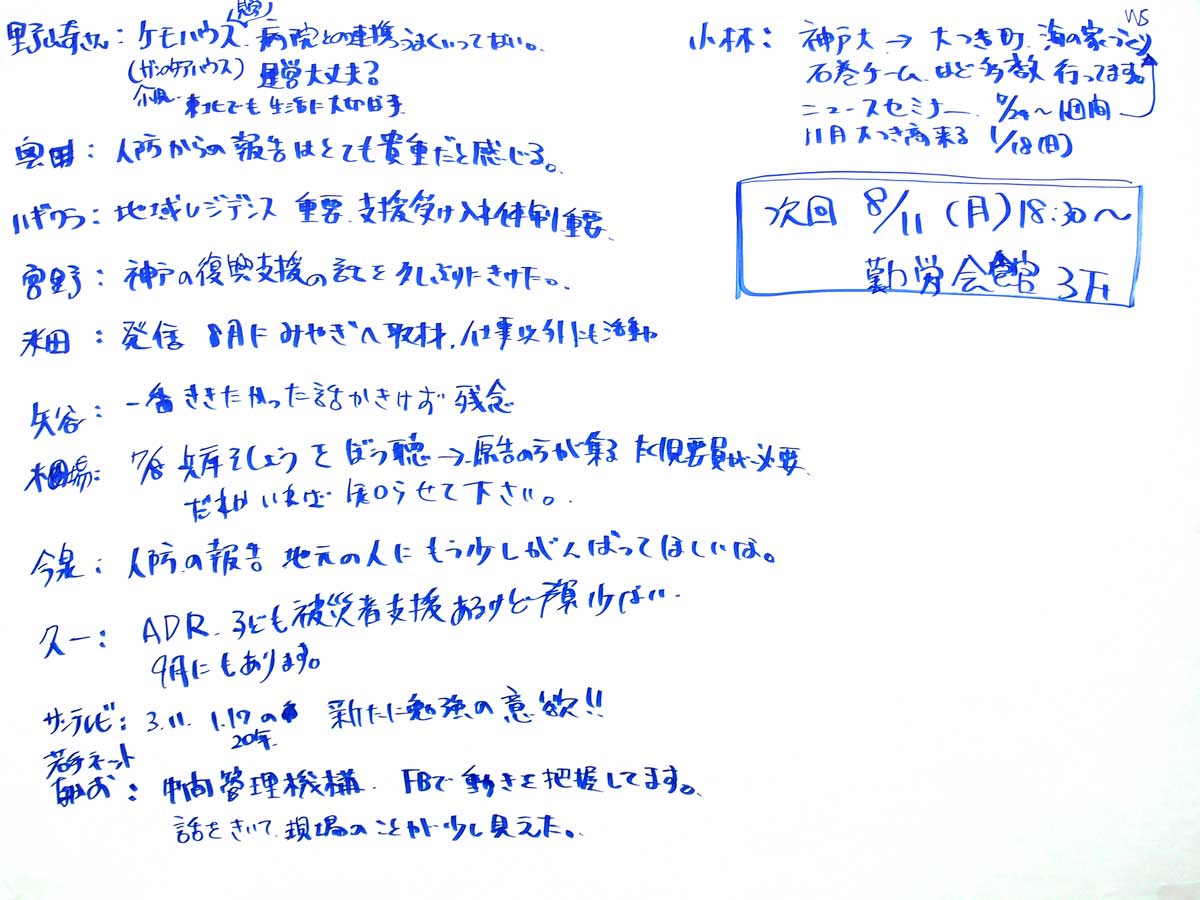 野崎さん: ケモハウス 病院との連携うまくいってない。
(ガンのケアハウス) 運営大丈夫?
東北でも生活に大切な手
奥田: 人防からの報告はとても貴重だと感じる。
ハギワラ: 地域レジデンス 重要、支援受け入れ体制重要
宮野: 神戸の復興支援の話を久しぶりにきけた。
米田: 発信 8月にみやぎへ取材、仕事以外にも活動
矢谷: 一番ききたかった話がきけず残念
相場: 7/8 兵庫そしょうをぼう聴→原告の方が集る たく児要員が必要
だれかいれば しらせて下さい。
今泉: 人防の報告 地元の人にもう少しがんばってほしいな。
スー: ADR、子ども被災者支援あるけど予算少ない
9月にもあります。
サンテレビ: 3.11 1.17の 新たに勉強の意欲!!
20年
若手ネット
中間管理機構 FBで動きを把握してます。
話をきいて、現場のことが少し見えた。
WS
小林: 神戸大→大つち町 海の家づくり
石巻チームなど多数行ってます。
ニュースセミナー 8/24〜1週間
11月大つち高来る 1/18(日)
次回 8/11(月)18:30〜
勤労会館 3F